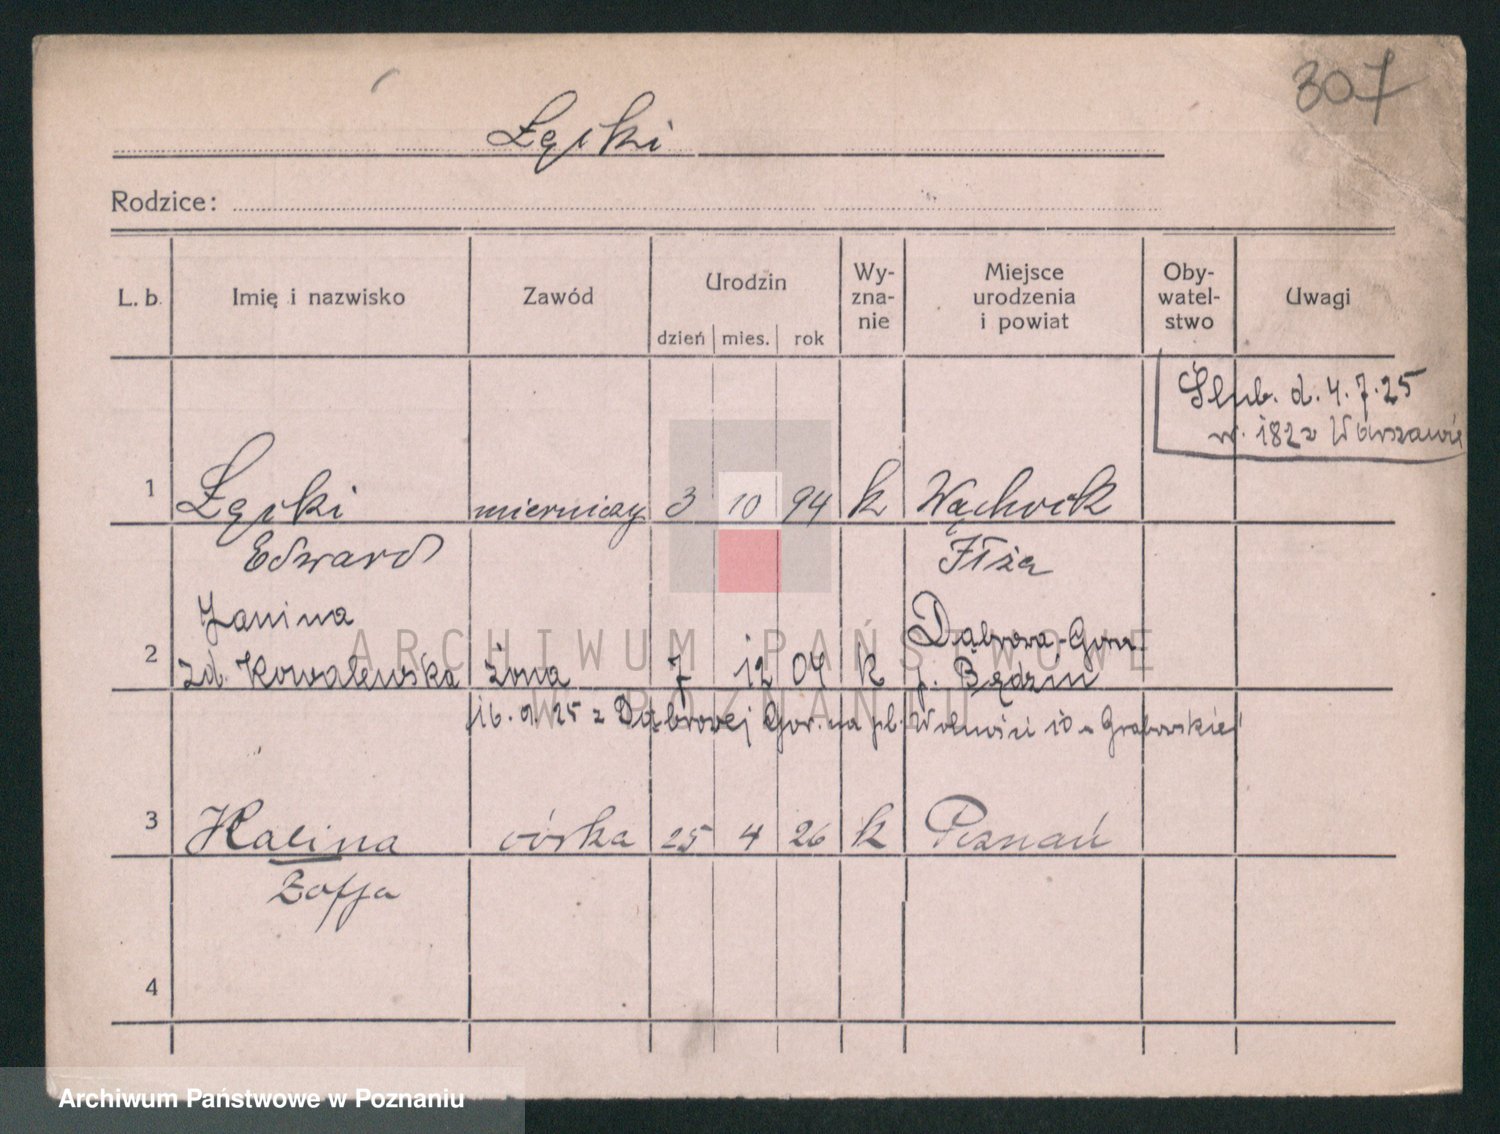 307
Łęski
Rodzice:
L. b. Imię i nazwisko Zawód Urodzin dzień mies. rok Wy-zna-nie Miejsce urodzenia i powiat Oby-watel-stwo Uwagi
Ślub. d. 4.7.25
w. 182 Warszawie
1 Łęski mierniczy 3 10 94 k Wąchock
Edward Iłża
Janina Dąbrowa-Gor.
2 zd. Kowalewska żona 7 12 04 k p. Będzin
16. 9. 25 z Dąbrowej Gor. na pl. Wolności 10 u Grabowskiej
3 Halina córka 25 4 26 k Poznań
Zofja
4
ARCHIWUM PAŃSTWOWE
W POZNANIU
Archiwum Państwowe w Poznaniu